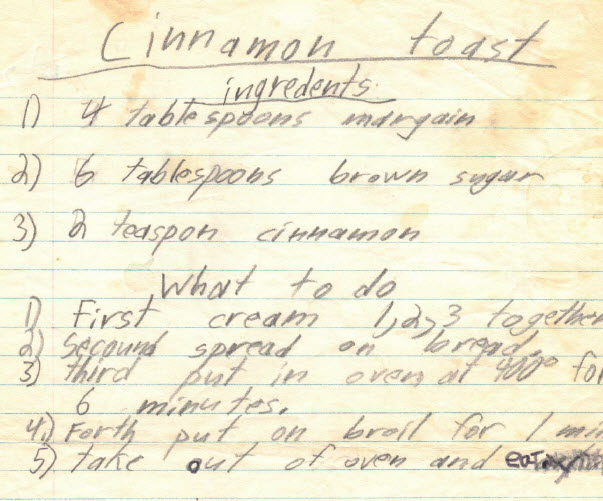 Cinnamon toast
ingredents
1) 4 tablespoons margain
2) 6 tablespoons brown sugar
3) 2 teaspon cinnamon
What to do
1) First cream 1,2,3 together
2) Secound spread on bread.
3) third put in oven at 400° for
6 minutes.
4.) Forth put on broil for 1 min
5) take out of oven and eat.